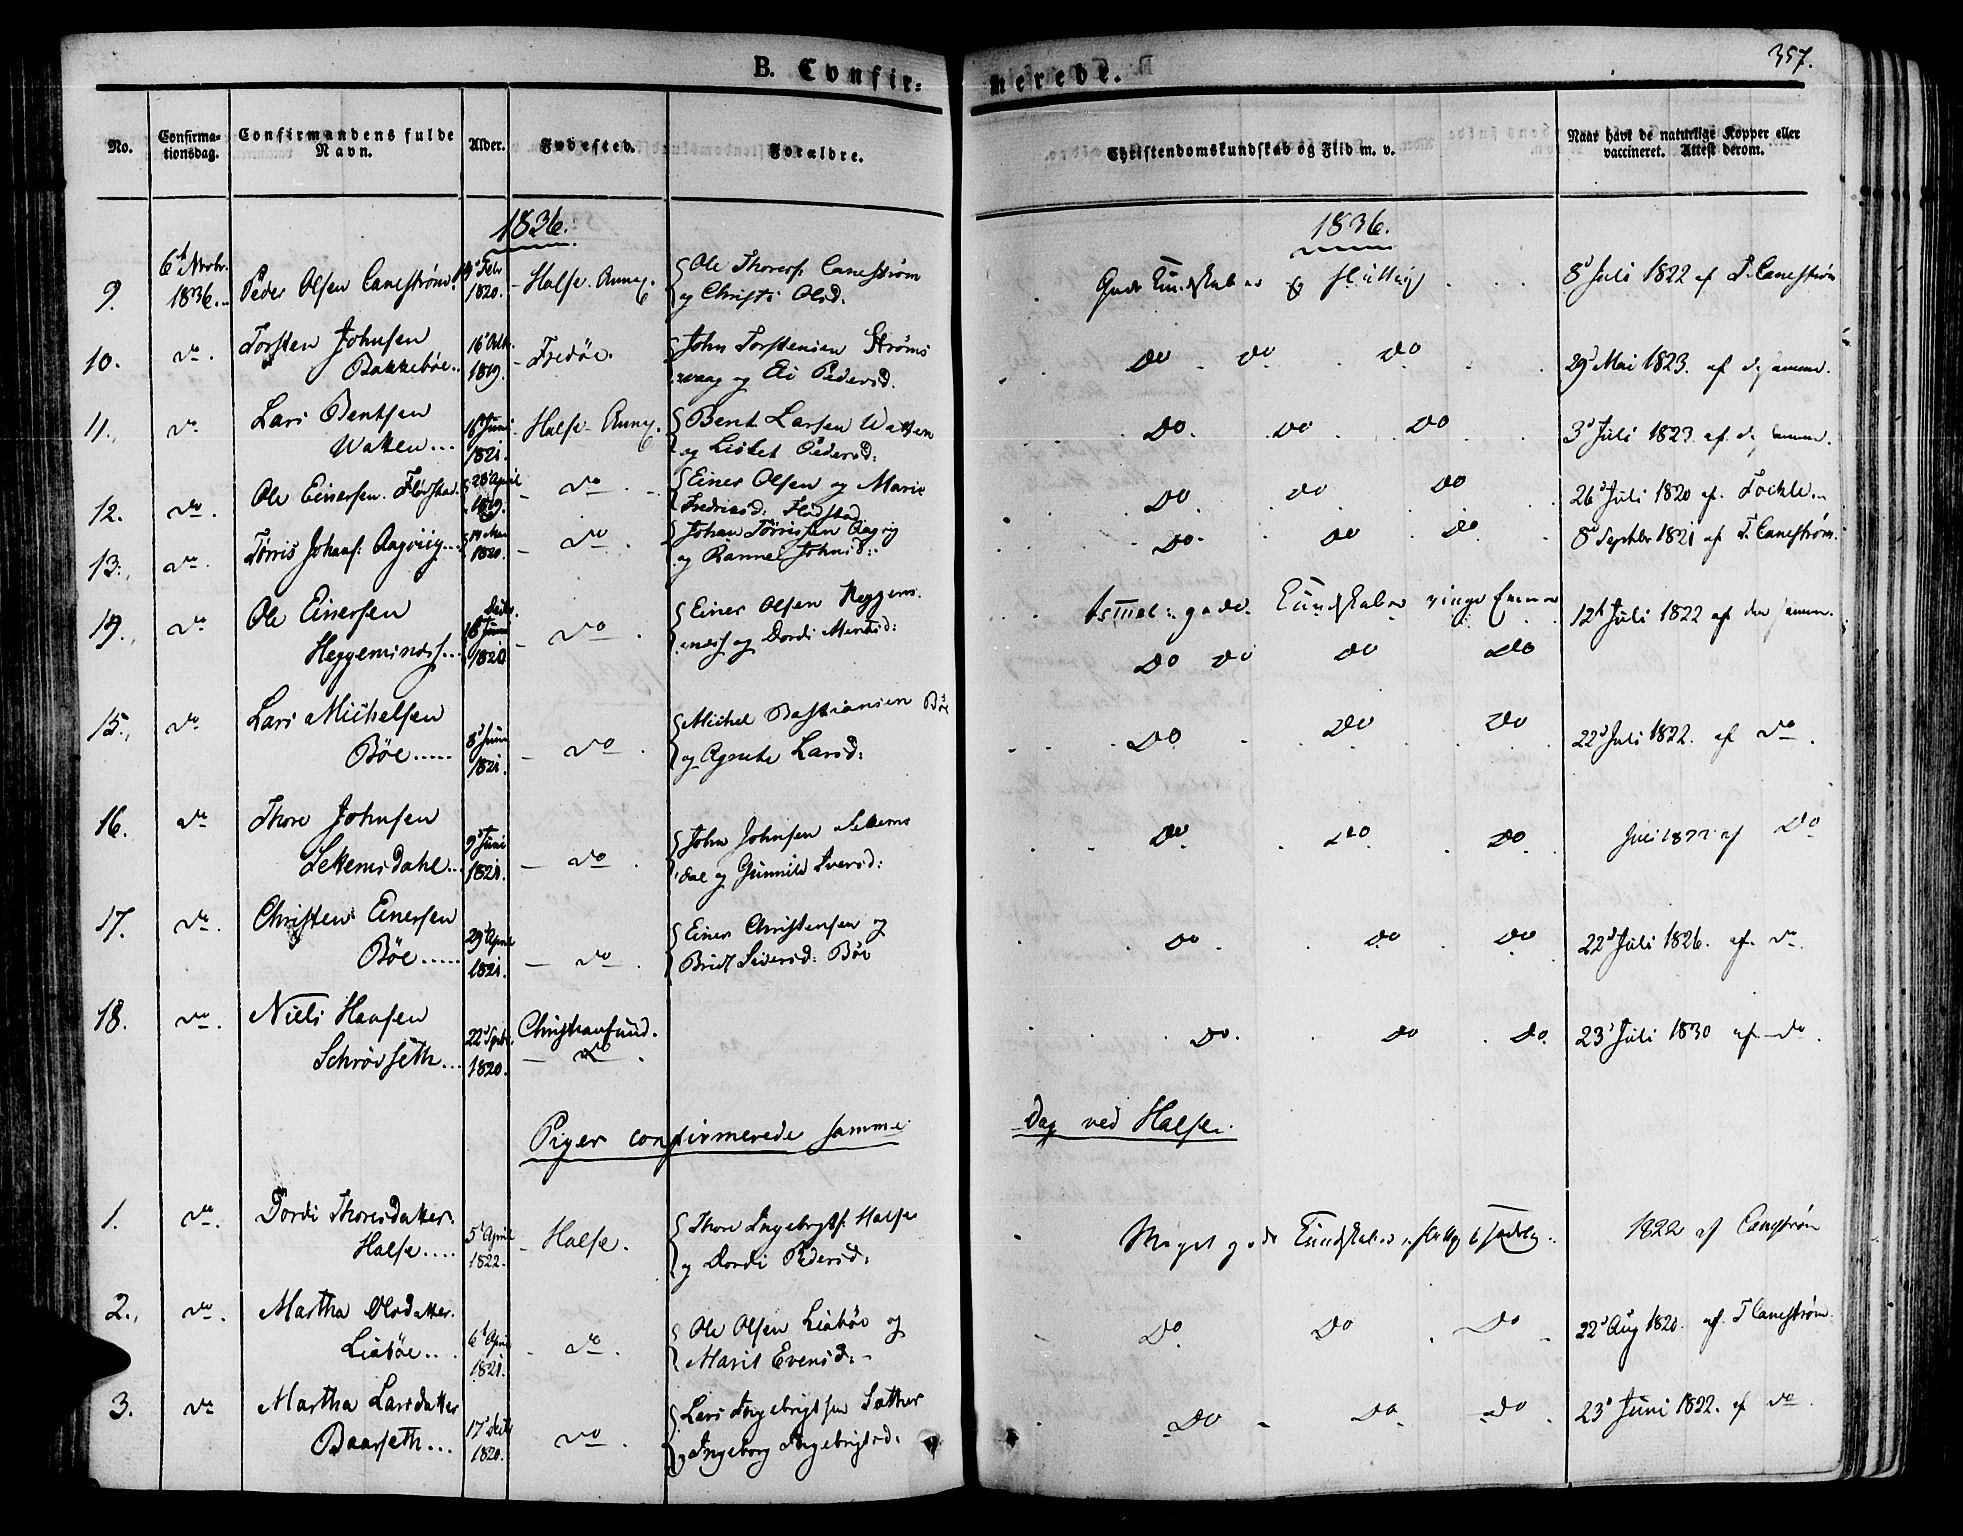 B. Confir-
merede.
357.
No.
Confirma-
tionsdag.
Confirmandens fulde
Navn.
Alder.
Fødested.
Forældre.
Christendomskundskab og Flid m. v.
Naar havt de naturlige Kopper eller
vaccineret. Attest derom.
1836.
1836.
9.
6t Novbr.
1836...
Peder Olsen Canestrøm
Febr
1820.
Halse Annex.
Ole Thoresf. Canestrøm
og Christi Olsd.
Gode Kundskaber og flittig
8d Juli 1822 af T. Canestrøm
10.
do.
Torsten Johnsen
Bakkebøe..
16d Octb.
1819.
Fredöe.
John Torstensen Strøms
vaag og Eli Pedersd.
Do Do Do
29d Mai 1823. af dsamme.
11.
do
Lars Bentsen
Watten...
1821.
Halse Annex.
Bent Larsen Watten
og Lisbet Pedersd:
Do. Do Do
3d Juli 1823. af dsamme.
12.
do.
Ole Einersen Flødstad.
28d April
1819.
do
Einer Olsen og Marie
Fredricsd: Flødstad
Do Do Do
26d Juli 1820 af
13.
do.
Tørris Johans: Aagviig...
1820.
do.
Johan Tørrissen Aagvig
og Rannei Johnsd:
Do. Do Do
8d Septbr 1821 af T. Canestrøm
19.
do.
Ole Einersen
Heggemsnæss...
1820
do.
Einer Olsen Heggems
næss og Dordi Mentsd:
gode Kundskaber ringe
Do Do Do Do
12t Juli 1822 af den samme.
15.
do
Lars Michelsen
Bøe.....
8d Juni
1821.
do.
Michel Bastiansen Bøe
og Agnete Larsd:
Do Do Do
22d Juli 1822. af do.
16.
do
Thore Johnsen
Setemsdahl...
9d Juni
1821.
do.
John Johnsen Setems
dal og Gunnild Iversd:
Do Do Do
Juli 1822 af Do
17.
do.
Christen Einersen
Bøe.....
29d April
1821.
do.
Einer Christensen og
Bridt Siversd: Bøe
Do Do Do
22d Juli 1826. af do.
18.
do.
Niels Hansen
Schrøvseth...
22d Septb.
1820.
Christiansund.
do
Do. Do Do.
23d Juli 1830 af do.
Piger confirmerede samme
Dag ved Halse.
1.
do.
Dordi Thoresdatter.
Halse.....
5t April
1822.
Halse.
Thore Ingebrigtsf. Halse
og Dordi Pedersd:
Meget gode Kundskaber, flittig & sædelig.
1822 af Canestrøm
2.
do.
Martha Olsdatter.
Liabøe...
6t April
1821.
do.
Ole Olsen Liabøe og
Marit Evensd:
Do Do Do
22d Aug 1820. af T Canestrøm.
3.
do
Martha Larsdatter
Baarseth...
1820.
do.
Lars Ingebrigtsen Sætter
og Ingeborg Ingebrigtsd:
Do Do Do
23d Juni 1822. af do.